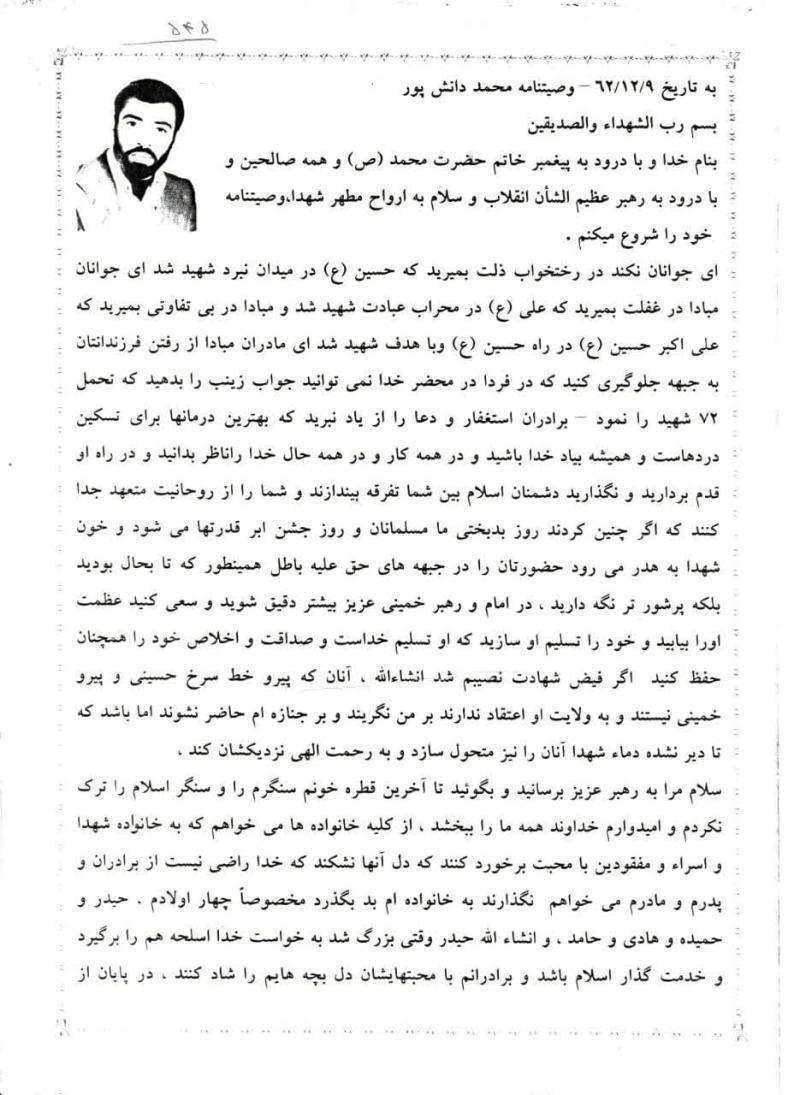 به تاریخ ۶۲/۱۲/۹ – وصیتنامه محمد دانش پور
بسم رب الشهداء والصدیقین
بنام خدا و با درود به پیغمبر خاتم حضرت محمد (ص) و همه صالحین و
با درود به رهبر عظیم الشأن انقلاب و سلام به ارواح مطهر شهدا،وصیتنامه
خود را شروع میکنم .
ای جوانان نکند در رختخواب ذلت بمیرید که حسین (ع) در میدان نبرد شهید شد ای جوانان
مبادا در غفلت بمیرید که علی (ع) در محراب عبادت شهید شد و مبادا در بی تفاوتی بمیرید که
علی اکبر حسین (ع) در راه حسین (ع) وبا هدف شهید شد ای مادران مبادا از رفتن فرزندانتان
به جبهه جلوگیری کنید که در فردا در محضر خدا نمی توانید جواب زینب را بدهید که تحمل
۷۲ شهید را نمود – برادران استغفار و دعا را از یاد نبرید که بهترین درمانها برای تسکین
دردهاست و همیشه بیاد خدا باشید و در همه کار و در همه حال خدا راناظر بدانید و در راه او
قدم بردارید و نگذارید دشمنان اسلام بین شما تفرقه بیندازند و شما را از روحانیت متعهد جدا
کنند که اگر چنین کردند روز بدبختی ما مسلمانان و روز جشن ابر قدرتها می شود و خون
شهدا به هدر می رود حضورتان را در جبهه های حق علیه باطل همینطور که تا بحال بودید
بلکه پرشور تر نگه دارید ، در امام و رهبر خمینی عزیز بیشتر دقیق شوید و سعی کنید عظمت
اورا بیابید و خود را تسلیم او سازید که او تسلیم خداست و صداقت و اخلاص خود را همچنان
حفظ کنید اگر فیض شهادت نصیبم شد انشاءالله ، آنان که پیرو خط سرخ حسینی و پیرو
خمینی نیستند و به ولایت او اعتقاد ندارند بر من نگریند و بر جنازه ام حاضر نشوند اما باشد که
تا دیر نشده دماء شهدا آنان را نیز متحول سازد و به رحمت الهی نزدیکشان کند ،
سلام مرا به رهبر عزیز برسانید و بگوئید تا آخرین قطره خونم سنگرم را و سنگر اسلام را ترک
نکردم و امیدوارم خداوند همه ما را ببخشد ، از کلیه خانواده ها می خواهم که به خانواده شهدا
و اسراء و مفقودین با محبت برخورد کنند که دل آنها نشکند که خدا راضی نیست از برادران و
پدرم و مادرم می خواهم نگذارند به خانواده ام بد بگذرد مخصوصاً چهار اولادم ، حیدر و
حمیده و هادی و حامد ، و انشاء الله حیدر وقتی بزرگ شد به خواست خدا اسلحه هم را برگیرد
و خدمت گذار اسلام باشد و برادرانم با محبتهایشان دل بچه هایم را شاد کنند ، در پایان از